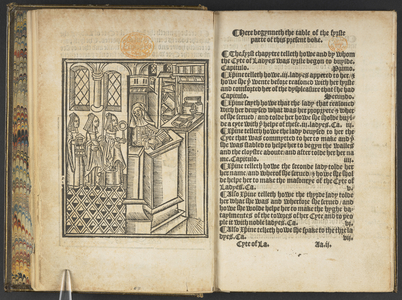 Here begynneth the table of the fyrste
parte of this present boke.
¶ The fyrst chapytre telleth howe and by whom
the Cyte of Ladyes was fyrste begon to buylde.
Capitulo. Primo.
¶ Item telleth howe .iii. ladyes appered to her &
howe she yt wente before reasoned with her fyrste
and comforted her of the dyspleasure that she had
Capitulo. Secundo.
¶ Item sayth howe that the lady that reasoned
with her devysed what was her propryete & what
she served: and tolde her howe she sholde buyl-
de a cyte with ye helpe of these .iii. ladyes. Ca. iii.
¶ Item telleth howe the lady devysed to her the
Cyte that was commytted to her to make and yt
she was stabled to helpe her to begyn the walles
and the closystre aboute: and after tolde her her na
me. Capitulo. iiii.
¶ Item telleth howe the seconde lady tolde her
her name: and wherof she served: & howe she shol
de helpe her to make the masonrye of the Cyte of
Ladyes. Ca. v.
¶ Also Item telleth howe the thyrde lady tolde
her what she was and wherfore she served: and
howe she wolde helpe her to make the hyghe ba-
taylmentes of the towres of her Cyte and to peo
ple it with noble ladyes. Ca. vi.
¶ Also Item telleth howe she spake to the thre la
dyes. Ca. vii.
Cyte of La. Aa.ii.